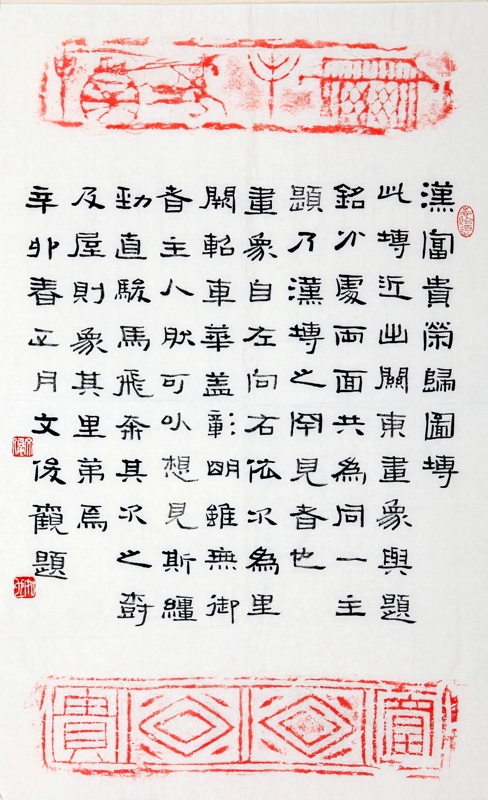 漢富貴榮歸圖塼
此塼近出關東畫象與題
銘分處兩面共為同一主
題乃漢塼之罕見者也
畫象自左向右依次為里
闕軺車華蓋彰明雖無御
者主人肰可以想見斯繮
勁直駿馬飛奔其次之樹
及屋則象其里第焉
辛卯春正月文俊觀題
富貴